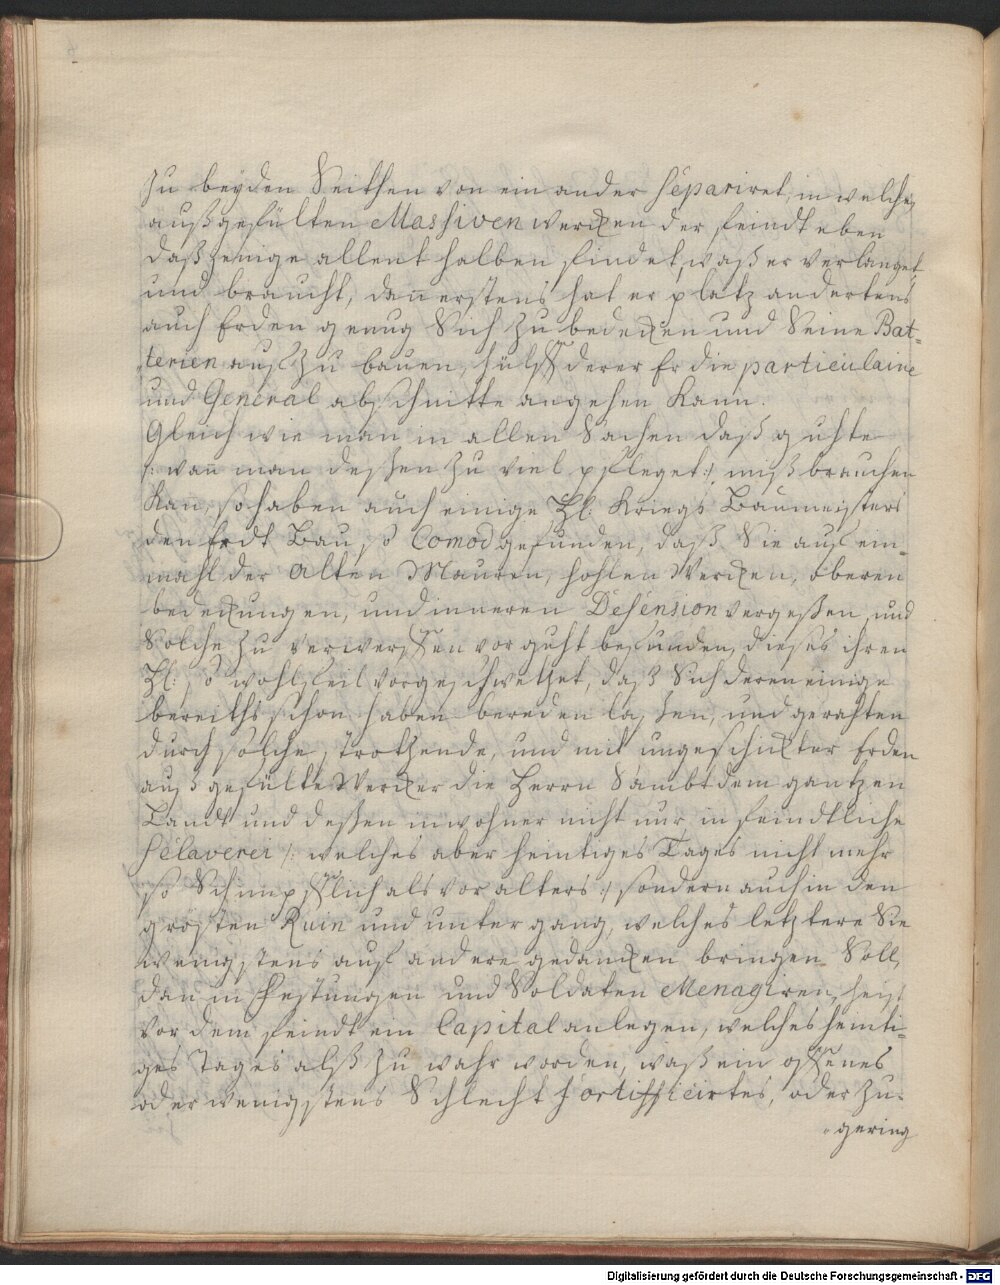 Zu beyden Seithen von ein ander Sépariret, in welchen
außgefülten Massiven wercken der feindt eben
daßjenige allent halben findet, waß er verlanget
und braucht, dan̄ erstens hat er platz andertens
auch Erden genug Sich zu bedecken und Seine Bat-
terien auf zu bauen, hülff derer Er die particulaire
und General abschnitte angehen Kann.
Gleich wie man in allen Sachen daß guhte
/: wan̄ man deßen zu viel pfleget :/ mißbrauchen
Kan̄, so haben auch einige Hl: Kriegs Baumeisters
den Erdt Bau so Comod gefunden, daß Sie auf ein-
mahl der Alten Mauren, hohlen Wercken, oberen
bedeckungen, und inneren Défension vergeßen, und
Solche zu verwerffen vor guht befunden, dieses ihren
Hl: so wohlfeil vorgeschwethet, daß Sich deren einige
bereiths schon haben bereden laßen, und gerahten
durch solche, trotzende, und mit ungeschickter Erden
auß gefülte Wercker die Herrn Sambt dem gantzen
Landt und deßen inwohner nicht nur in feindtliche
Sélaverei /: welches aber heintiges Tages nicht mehr
so Schimpfflich als vor alters :/ sondern auch in den
grösten Ruin und untergang, welches letztere Sie
wenigstens auf andere gedancken bringen Soll,
dan in Festungen und Soldaten Menagiren, heist
vor dem feindt ein Capital anlegen, welches heinti-
ges Tages alß zu wahr worden, waß ein offenes
oder wenigstens Schlecht fortifficirtes, oder zu-
gering
Digitalisierung gefördert durch die Deutsche Forschungsgemeinschaft - DFG